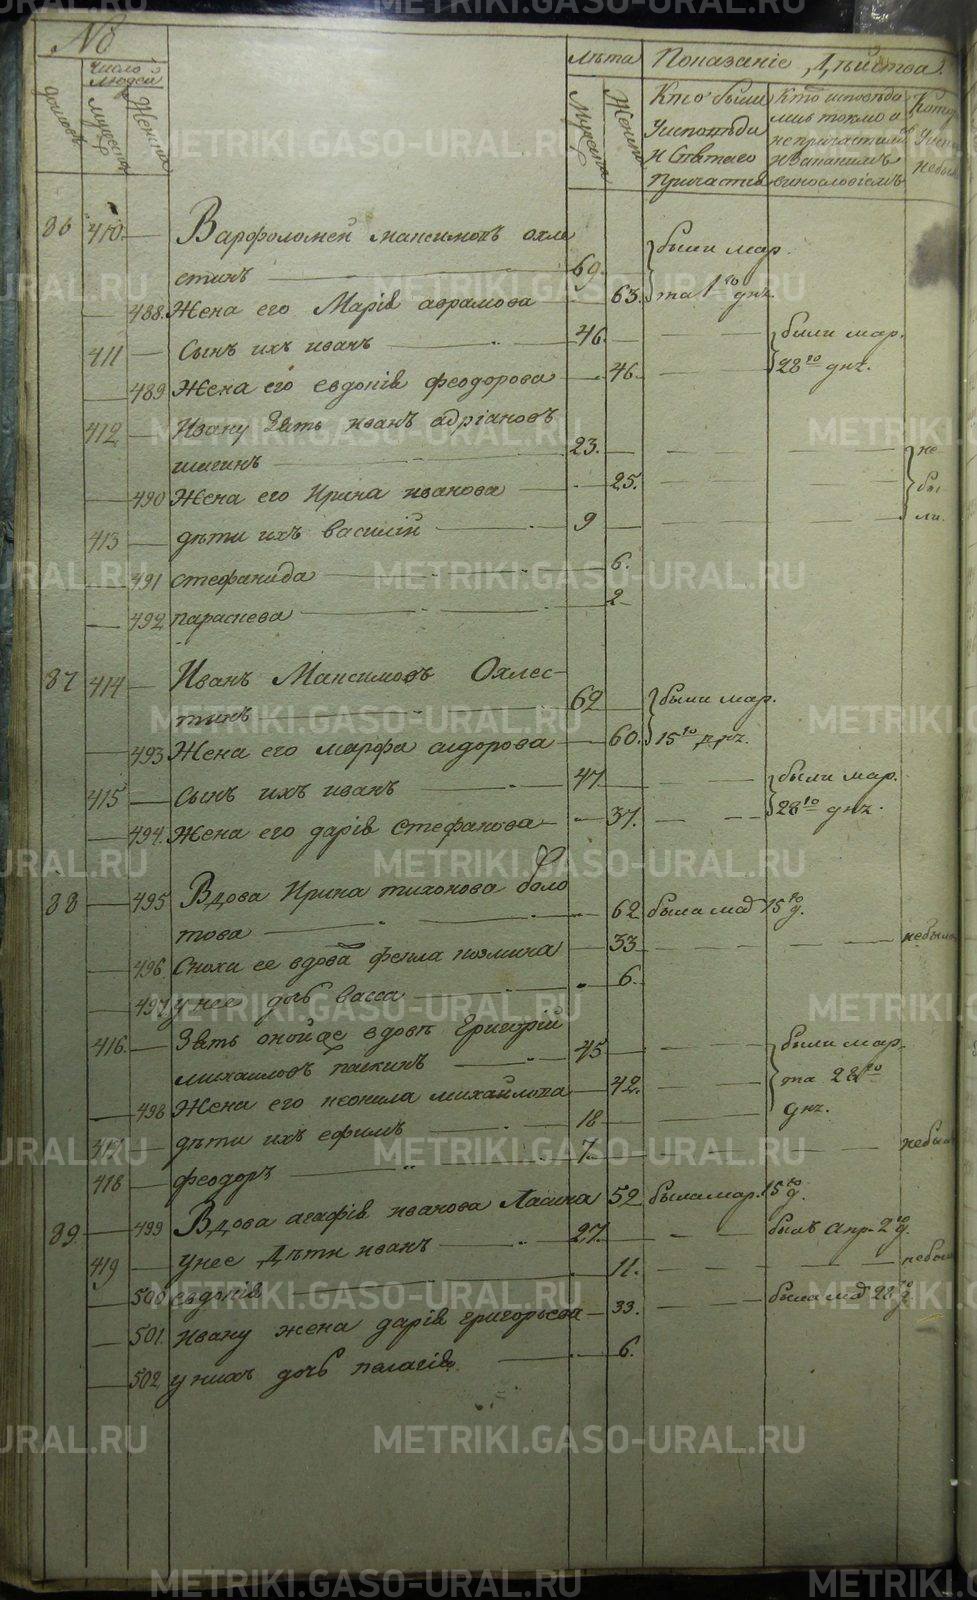 №
Число людей
домовъ
мужеска
Женска
Лѣта
Мужеска
Женска
Показаніе Дѣйства
Кто были
Уисповѣди
и Святаго
Причастія
Кто исповѣда
лись токмо а
непричастили
и закакимъ
винословіемъ
86 410 — Варфоломей Максимовъ охле
стинъ — 69. были мар.
— 488. Жена его Марія аврамова — 63. та 1го днѧ.
411 — Сынъ ихъ иванъ — 46. — были мар.
— 489 Жена его евдокія феодорова — 46. — 28го днѧ.
412 — Ивану Зять иванъ адріановъ
шагинъ — 23. — не
— 490 Жена его Ирина иванова — 25. бы
413 — дѣти ихъ василій — 9 — ли.
— 491 стефанида — 6.
— 492 параскева — 2
87 414 — Иванъ Максимовъ Охлес-
тинъ — 69 были мар.
— 493 Жена его марфа сидорова — 60. 15го днѧ.
415 — Сынъ ихъ иванъ — 47 — были мар.
— 494. Жена его дарія Стефанова — 37. — 28го днѧ.
88 — 495 Вдова Ирина тихонова боло
това — 62 была мар 15го д.
— 496. Сноха ее вдова фекла козмина — 33 — небыла
— 497 у нее дочь васса — 6.
416. — Зять оной же вдовы Григорій
михаиловъ паскинъ — 45 — были мар.
— 498 Жена его неонила михайлова — 42. — та 28го
417 — дѣти ихъ ефимъ — 18 — днѧ.
418 — феодоръ — 7. — небыл
89 — 499 Вдова агафія иванова Ласина 52 была мар. 15го д.
419 — Унее Дѣти иванъ — 27. — былъ апр. 2го д.
— 500 евдокія — 11. — небыл
— 501. ивану жена дарія григорьева — 33. — была мар 28го д.
— 502 у нихъ дочь пелагія. — 6.
METRIKI.GASO-URAL.RU